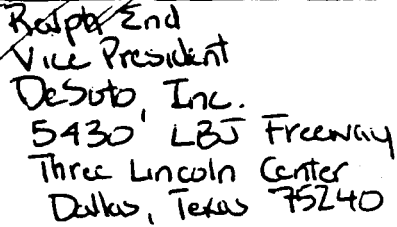 Ralph End
Vice President
DeSoto, Inc.
5430 LBJ Freeway
Three Lincoln Center
Dallas, Texas 75240